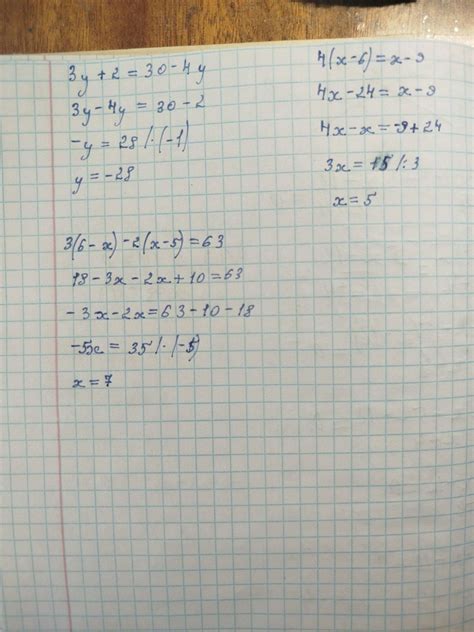 3y + 2 = 30 - 4y
3y - 4y = 30 - 2
-y = 28 /·(-1)
y = -28
4(x - 6) = x - 9
4x - 24 = x - 9
4x - x = -9 + 24
3x = 15 /:3
x = 5
3(6 - x) - 2(x - 5) = 63
18 - 3x - 2x + 10 = 63
- 3x - 2x = 63 - 10 - 18
-5x = 35 /:(-5)
x = 7